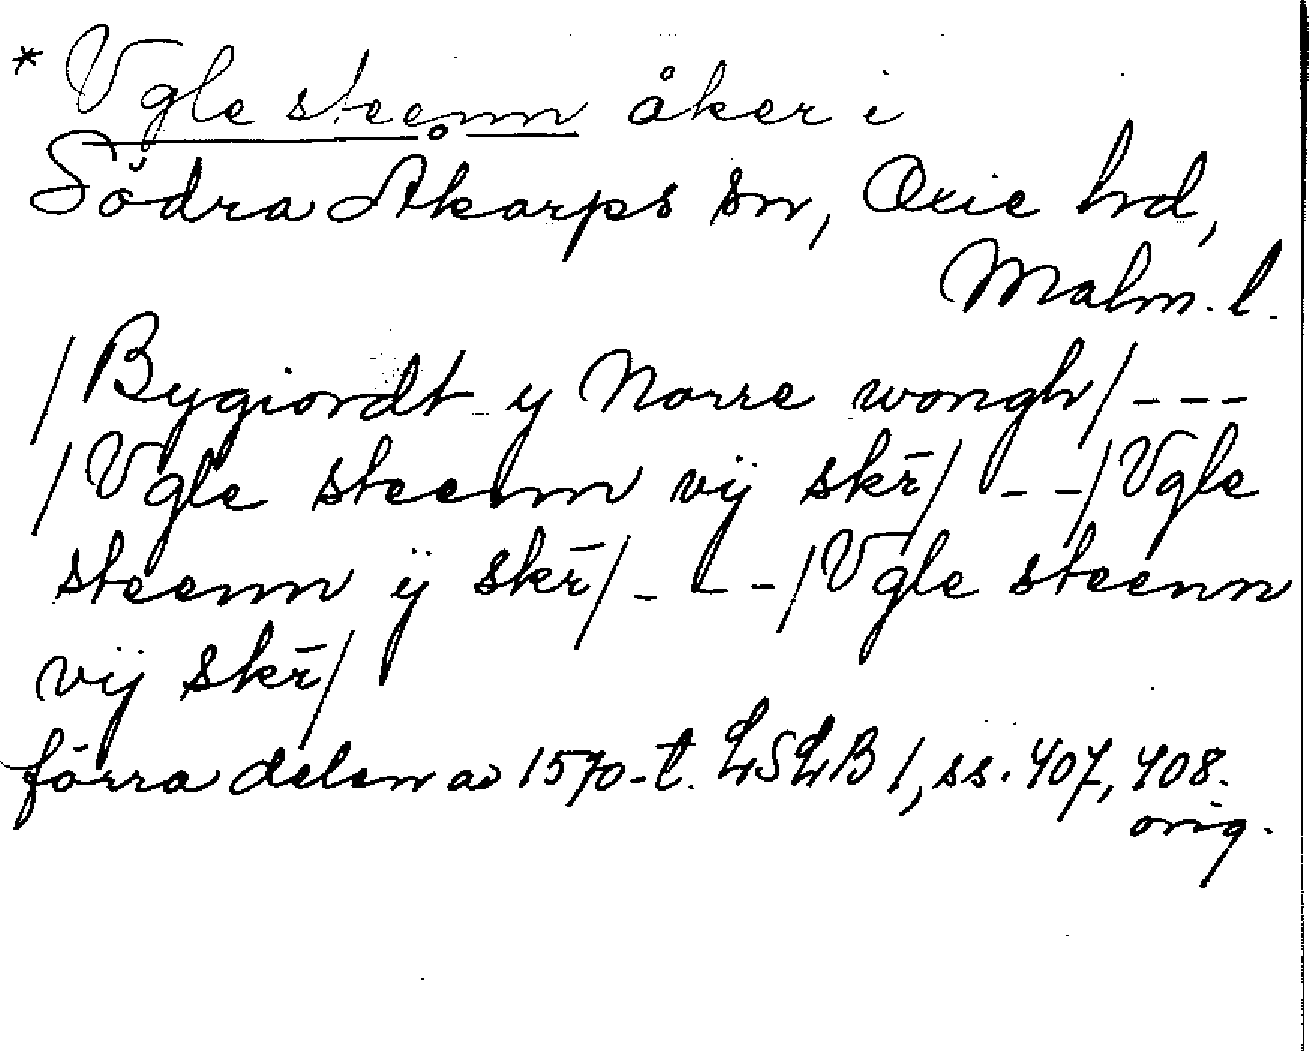 * Vgle steenn åker i
Södra Åkarps sn, Oxie hrd,
Malm. l.
/Bygiordt y Norre wongh/ - - -
/Vgle steenn vij skr̄/ - - -/Vgle
steenn ij skr̄/ - - - -/Vgle steenn
vij skr̄/
förra delen av 1570-t. LSLB 1, ss. 407, 408.
orig.